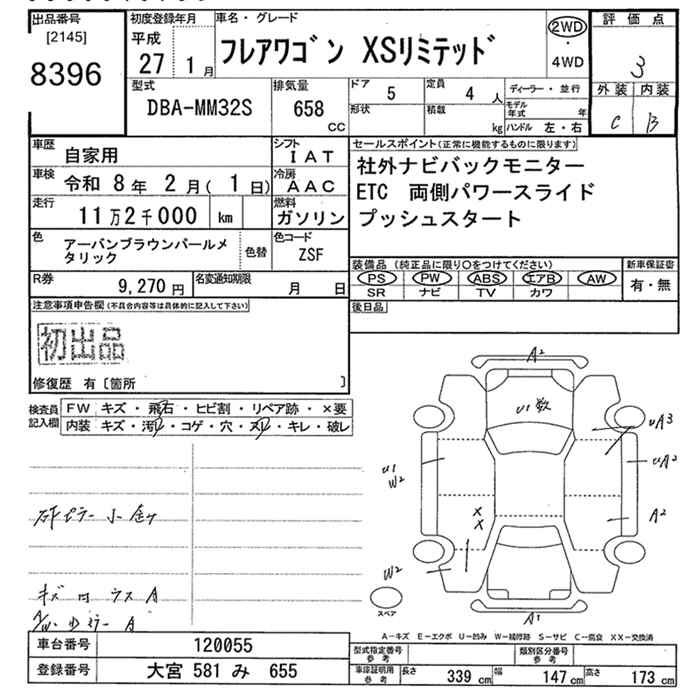 出品番号
[2145]
8396
初度登録年月
平成
27 1月
車名・グレード
フレアワゴン XSリミテッド
2WD
・
4WD
評価点
3
外装 内装
C B
型式
DBA-MM32S
排気量
658
CC
ドア 5
定員 4 人
形状
積載 kg
ディーラー・並行
モデル年式 年
ハンドル 左・右
車歴 自家用
シフト IAT
車検 令和 8年 2月( 1日)
冷房 AAC
走行 11万2千000 km
燃料 ガソリン
色 アーバンブラウンパールメタリック
色替
色コード ZSF
R券 9,270円
名変通知期限 月 日
セールスポイント(正常に機能するものに限ります)
社外ナビバックモニター
ETC 両側パワースライド
プッシュスタート
装備品 (純正品に限り○をつけてください)
新車保証書
PS PW ABS エアB AW
SR ナビ TV カワ
有・無
後日品
注意事項申告欄(不具合内容等は具体的に記入して下さい)
初出品
修復歴 有〔箇所 〕
検査員記入欄
FW キズ・飛石・ヒビ割・リペア跡・×要
内装 キズ・汚レ・コゲ・穴・スレ・キレ・破レ
A2
U1数
UA3
UA2
A2
U1
W2
X
X
W2
A1
スペア
A-キズ E-エクボ U-凹み W-補修跡 S-サビ C-腐食 XX-交換済
車台番号 120055
登録番号 大宮 581 み 655
型式指定番号 参考
類別区分番号 参考
車庫証明用 参考
長さ 339cm 幅 147cm 高さ 173cm